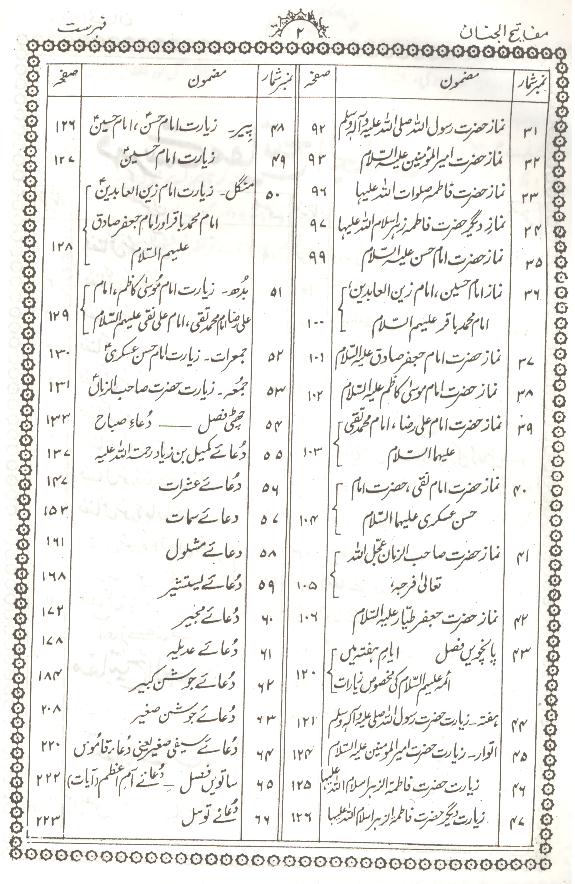 مفاتیح الجنان ۲ فہرست
نمبر شمار مضمون صفحہ
۳۱ نماز حضرت رسول اللہ صلی اللہ علیہ وآلہ وسلم ۹۲
۳۲ نماز حضرت امیر المؤمنین علیہ السلام ۹۳
۳۳ نماز حضرت فاطمہ صلوات اللہ علیہا ۹۶
۳۴ نماز دیگر حضرت فاطمہ زہرا سلام اللہ علیہا ۹۷
۳۵ نماز حضرت امام حسن علیہ السلام ۹۹
۳۶ نماز امام حسین، امام زین العابدین،
امام محمد باقر علیہم السلام ۱۰۰
۳۷ نماز حضرت امام جعفر صادق علیہ السلام ۱۰۱
۳۸ نماز حضرت امام موسیٰ کاظم علیہ السلام ۱۰۲
۳۹ نماز حضرت امام علی رضا، امام محمد تقی
علیہما السلام ۱۰۳
۴۰ نماز حضرت امام نقی، حضرت امام
حسن عسکری علیہما السلام ۱۰۴
۴۱ نماز حضرت صاحب الزمان عجل اللہ
تعالیٰ فرجہ، ۱۰۵
۴۲ نماز حضرت جعفر طیار علیہ السلام ۱۰۶
۴۳ پانچویں فصل ایام ہفتہ میں
ائمہ علیہم السلام کی مخصوص زیارات ۱۲۰
۴۴ ہفتہ۔ زیارت حضرت رسول اللہ صلی اللہ علیہ وآلہ وسلم ۱۲۱
۴۵ اتوار۔ زیارت حضرت امیر المومنین علیہ السلام ۱۲۴
۴۶ زیارت حضرت فاطمۃ الزہرا سلام اللہ علیہا ۱۲۵
۴۷ زیارت دیگر حضرت فاطمۃ الزہرا سلام اللہ علیہا ۱۲۶
نمبر شمار مضمون صفحہ
۴۸ پیر۔ زیارت امام حسنؑ، امام حسینؑ ۱۲۶
۴۹ زیارت امام حسینؑ ۱۲۷
۵۰ منگل۔ زیارت امام زین العابدینؑ
امام محمد باقر اور امام جعفر صادق
علیہم السلام ۱۲۸
۵۱ بدھ۔ زیارت امام موسیٰ کاظم، امام
علی رضا، امام محمد تقی، امام علی نقی علیہم السلام ۱۲۹
۵۲ جمعرات۔ زیارت امام حسن عسکریؑ ۱۳۰
۵۳ جمعہ۔ زیارت حضرت صاحب الزمانؑ ۱۳۱
۵۴ چھٹی فصل — دعاء صباح ۱۳۳
۵۵ دعائے کمیل بن زیاد رحمۃ اللہ علیہ ۱۳۷
۵۶ دعائے عشرات ۱۴۷
۵۷ دعائے سمات ۱۵۳
۵۸ دعائے مشلول ۱۶۱
۵۹ دعائے یستشیر ۱۶۸
۶۰ دعائے مجیر ۱۷۲
۶۱ دعائے عدیلہ ۱۷۸
۶۲ دعائے جوشن کبیر ۱۸۴
۶۳ دعائے جوشن صغیر ۲۰۸
۶۴ دعائے سیفی صغیر یعنی دعاء قاموس ۲۲۰
۶۵ ساتویں فصل — دعائے اسم اعظم (دآیات) ۲۲۲
۶۶ دعائے توسل ۲۲۳